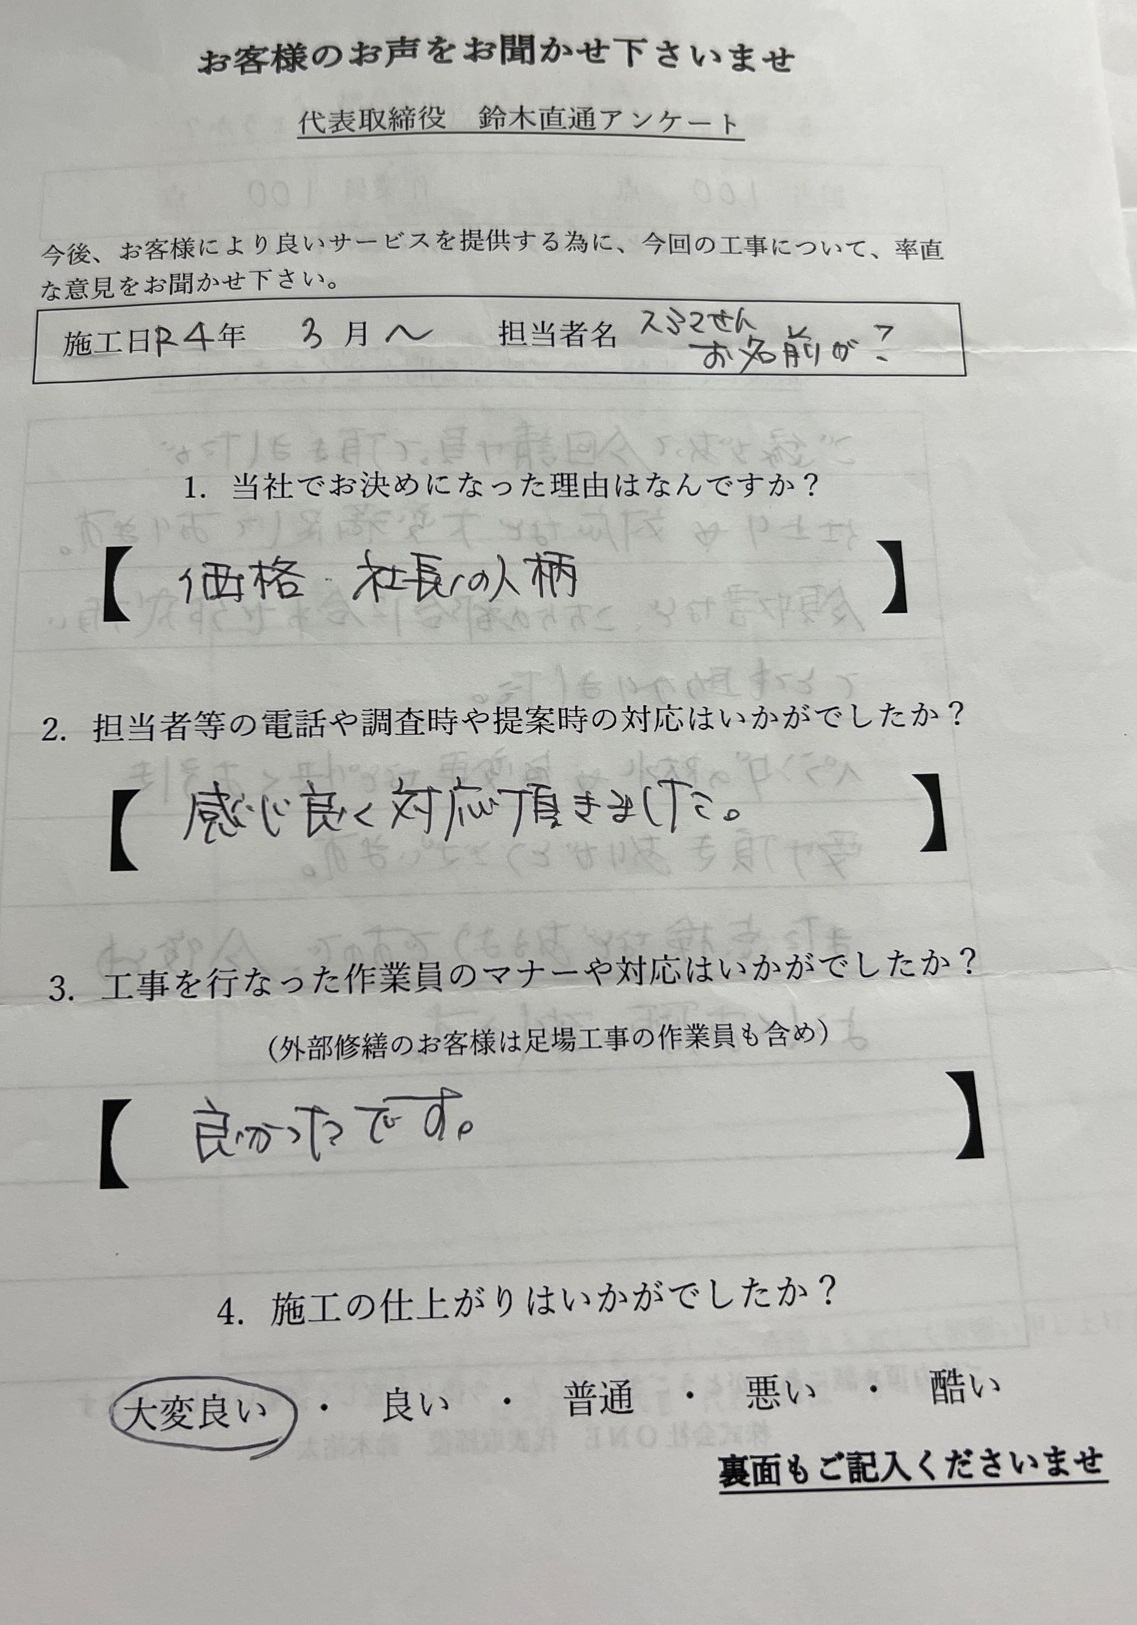 お客様のお声をお聞かせ下さいませ
代表取締役　鈴木直通アンケート
今後、お客様により良いサービスを提供する為に、今回の工事について、率直
な意見をお聞かせ下さい。
施工日R4年　3月〜　担当者名　スミマセん
お名前が？
1. 当社でお決めになった理由はなんですか？
【　価格　社長の人柄　】
2. 担当者等の電話や調査時や提案時の対応はいかがでしたか？
【　感じ良く対応頂きました。　】
3. 工事を行なった作業員のマナーや対応はいかがでしたか？
（外部修繕のお客様は足場工事の作業員も含め）
【　良かったです。　】
4. 施工の仕上がりはいかがでしたか？
大変良い　・　良い　・　普通　・　悪い　・　酷い
裏面もご記入くださいませ